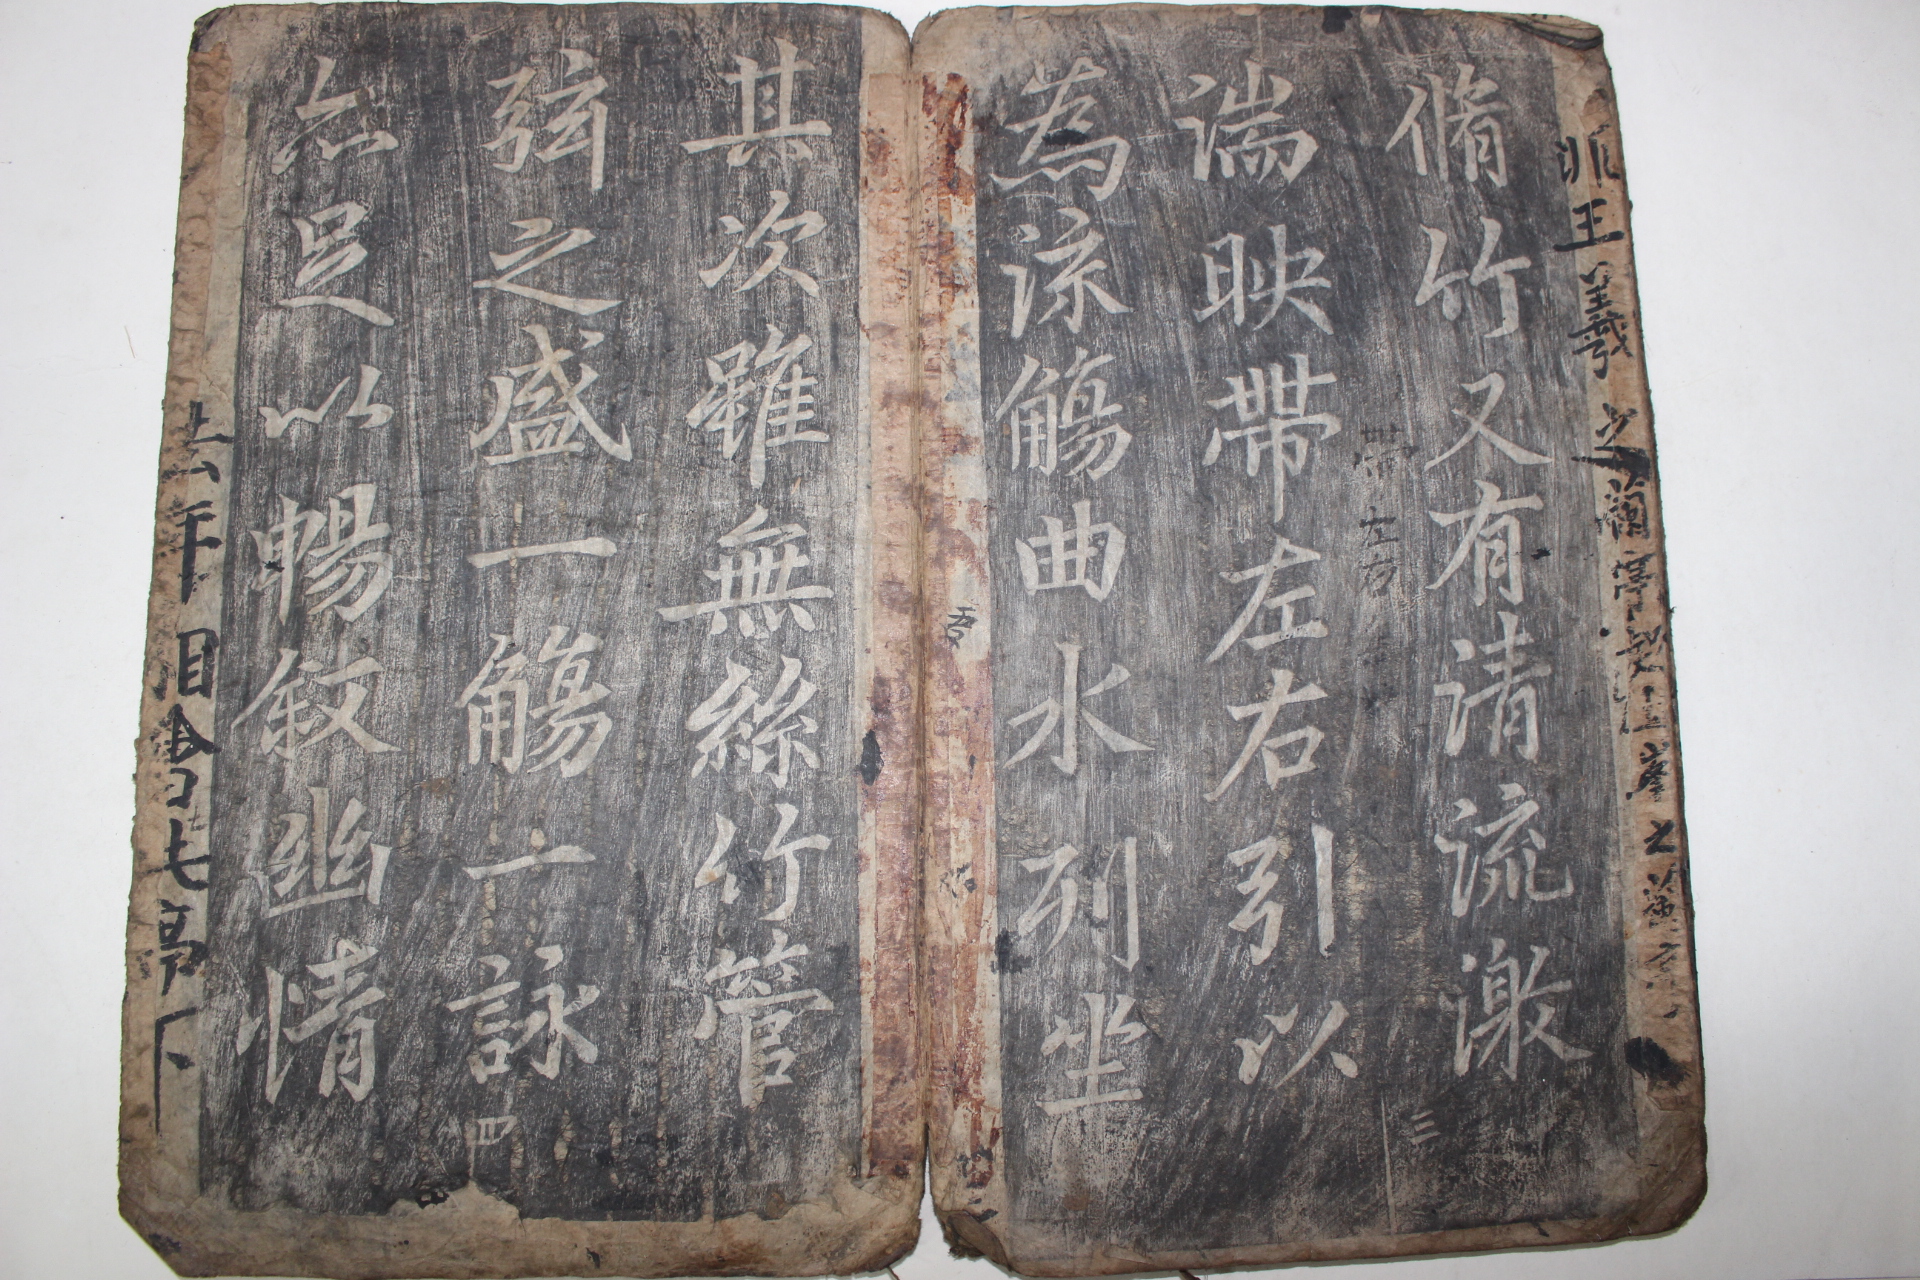 王羲之蘭亭
脩竹又有清流激
三
帶左右
湍映帶左右引以
為流觴曲水列坐
吾
其次雖無絲竹管
弦之盛一觴一詠
四
亦足以暢敘幽情